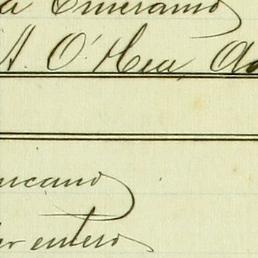 a Emeramo
A. O'Hea, Ad
ucano
er entero